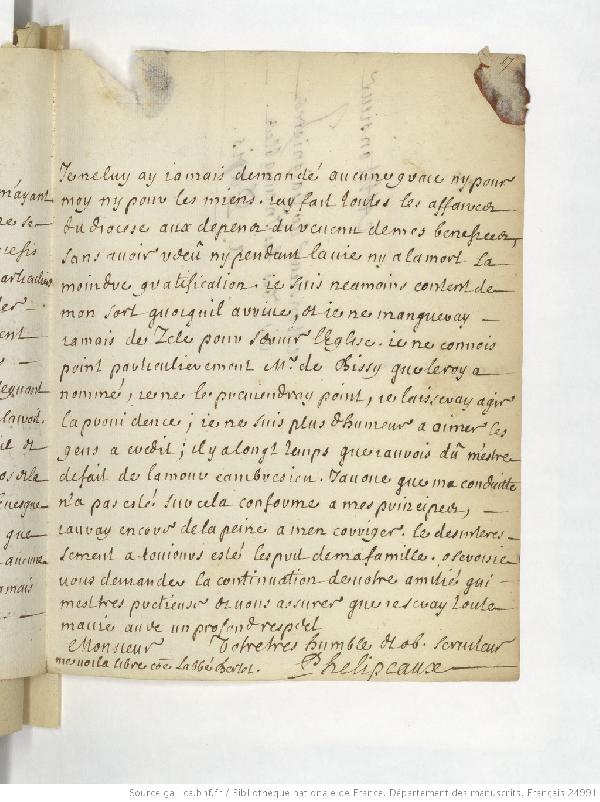 17
Je ne luy ay iamais demandé aucune grace ny pour
moy ny pour les miens. iay fait toutes les affaires
du diocese aux depens du revenu de mes benefices,
sans avoir receu ny pendant la vie ny a la mort la
moindre gratification. ie suis neamoins content de
mon sort quoiquil arrive, et ie ne manqueray
iamais de Zele pour servir l'Eglise. ie ne connois
point particulierement Mr. de Bissy que le roy a
nommé, ie ne le previendray point, ie laisseray agir
la providence; ie ne suis plus d'humeur a aimer les
gens a credit; il y a longt temps que iaurois dû m'estre
defait de l'amour cambresien. J'avoue que ma conduitte
n'a pas esté sur cela conforme a mes principes,
iauray encore de la peine a m'en corriger. le desinteres-
sement a toujours esté le fruit de ma famille. oserois ie
vous demander la continuation de votre amitié qui
m'est tres pretieuse et vous assurer que ie seray toute
ma vie avec un profond respect
Monsieur Votre tres humble et ob. serviteur
me voila libre coe l'abbé Bertot. Phelipeaux
mayant
ne se
particulier
ent
il et
que
aucune
iamais
Source gallica.bnf.fr / Bibliothèque nationale de France. Département des manuscrits. Français 24991